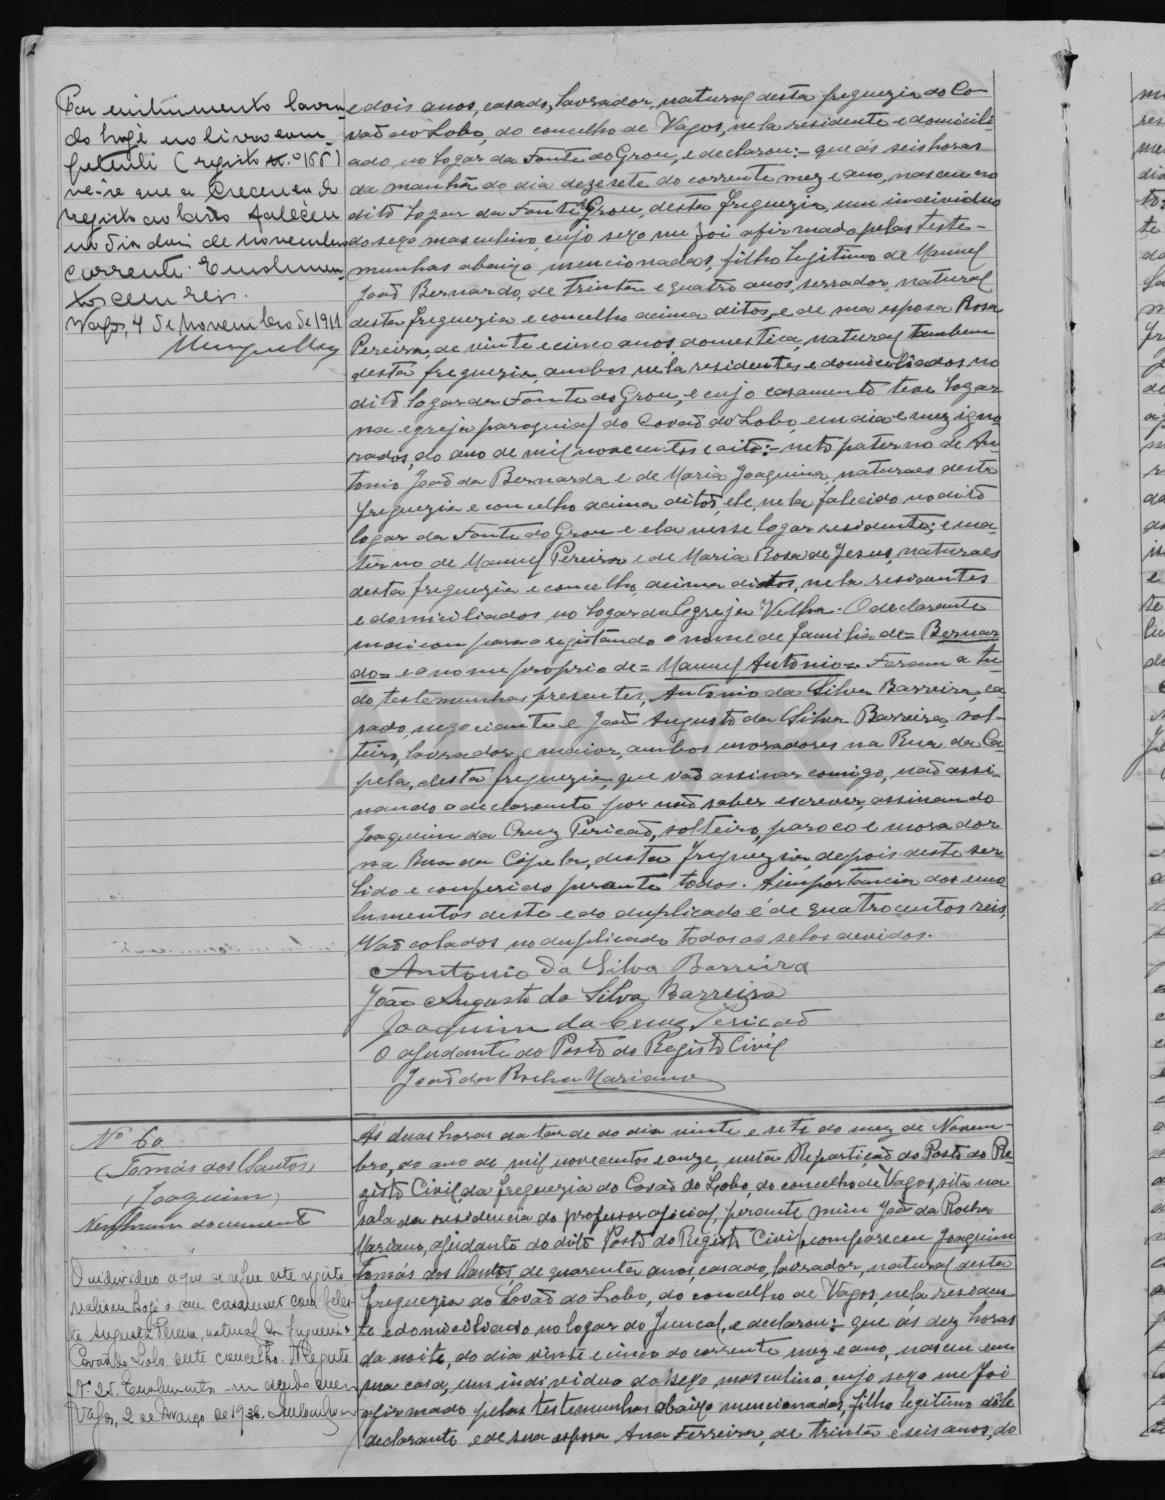 Por instrumento lavra-
do hoje no livro com-
petente (registo n.º 155)
vê-se que a creança do
registo ao lado faleceu
no dia dois de novembro
corrente. Emolumen-
tos cem reis.
Vagos, 4 de novembro de 1911
e dois anos, casado, lavrador, natural desta freguezia do Co-
vaõ do Lobo, do concelho de Vagos, nela residente e domicili-
ado no logar da Fonte do Grou, e declarou:- que ás seis horas
da manhã do dia dezesete do corrente mez e ano, nasceu no
dito logar da Fonte do Grou, desta freguezia, um individuo
do sexo masculino, cujo sexo me foi afirmado pelas teste-
munhas abaixo mencionadas, filho legitimo de Manuel
Joaõ Bernardo, de trinta e quatro anos, serrador, natural
desta freguezia e concelho acima ditos, e de sua esposa Rosa
Pereira, de vinte e cinco anos, domestica, natural tambem
desta freguezia, ambos nela residentes e domiciliados no
dito logar da Fonte do Grou, e cujo casamento teve logar
na egreja paroquial do Covaõ do Lobo, em dia e mez igno-
rados, do ano de mil novecentos e oito:- neto paterno de An-
tonio Joaõ da Bernarda e de Maria Joaquina, naturaes desta
freguezia e concelho acima ditos, ele, nela falecido no dito
logar da Fonte do Grou e ela nesse logar residente; e ma-
terno de Manuel Pereira e de Maria Rosa de Jesus, naturaes
desta freguezia e concelho, acima ditos, nela residentes
e domiciliados no logar da Egreja Velha. O declarante
indicou para o registando o nome de familia de= Bernar
do= e o nome proprio de= Manuel Antonio= Foram a tu-
do testemunhas presentes, Antonio da Silva Barreira, ca-
sado, negociante e Joaõ Augusto da Silva Barreira, sol-
teiro, lavrador, e maior, ambos moradores na Rua da Ca-
pela, desta freguezia, que vaõ assinar comigo, naõ assi-
nando o declarante por naõ saber escrever, assinando
Joaquim da Cruz Pericaõ, solteiro, paroco e morador
na Rua da Capela, desta freguezia, depois deste ser
lido e conferido perante todos. A importancia dos emo
lumentos deste e do duplicado é de quatrocentos reis,
Vaõ colados no duplicado todos os selos devidos.
Antonio da Silva Barreira
João Augusto da Silva Barreira
Joaquim da Cruz Pericaõ
O ajudante do Posto do Registo Civil
Joaõ da Rocha Mariano
Nº 60
(Tomás dos Santos,
Joaquim)
Nenhum documento
O individuo a que se refere este registo
realisou hoje o seu casamento com
Augusta Pereira, natural da freguezia
Covaõ do Lobo, deste concelho. Registo
Nº 25. Emolumento
Vagos, 2 de Março de 1936.
Ás duas horas da tarde do dia vinte e sete do mez de Novem-
bro, do ano de mil novecentos e onze, nesta Repartiçaõ do Posto do Re-
gisto Civil, da freguezia do Covaõ do Lobo, do concelho de Vagos, sita na
sala da residencia do professor oficial, perante mim Joaõ da Rocha
Mariano, ajudante do dito Posto do Registo Civil, compareceu Joaquim
Tomás dos Santos, de quarenta anos, casado, lavrador, natural desta
freguezia do Covaõ do Lobo, do concelho de Vagos, nela residen
te e domiciliado no logar do Juncal, e declarou:- que ás dez horas
da noite, do dia vinte e cinco do corrente mez e ano, nasceu em
sua casa, um individuo do sexo masculino, cujo sexo me foi
afirmado pelas testemunhas abaixo mencionadas, filho legitimo dele
declarante e de sua esposa Ana Ferreira, de trinta e seis anos, do